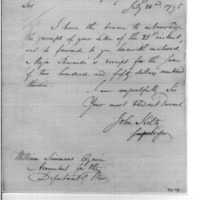 July 22d 1795
Sir
I have the honor to acknowledge
the receipt of your letter of the 21st instant,
and to forward to you herewith enclosed
Major receipt for the sum
of two hundred and fifty dollars
therein.
I am respectfully Sir
Your most obedient Servant
John
William Simmons Esquire
Accountant for the
Department of War